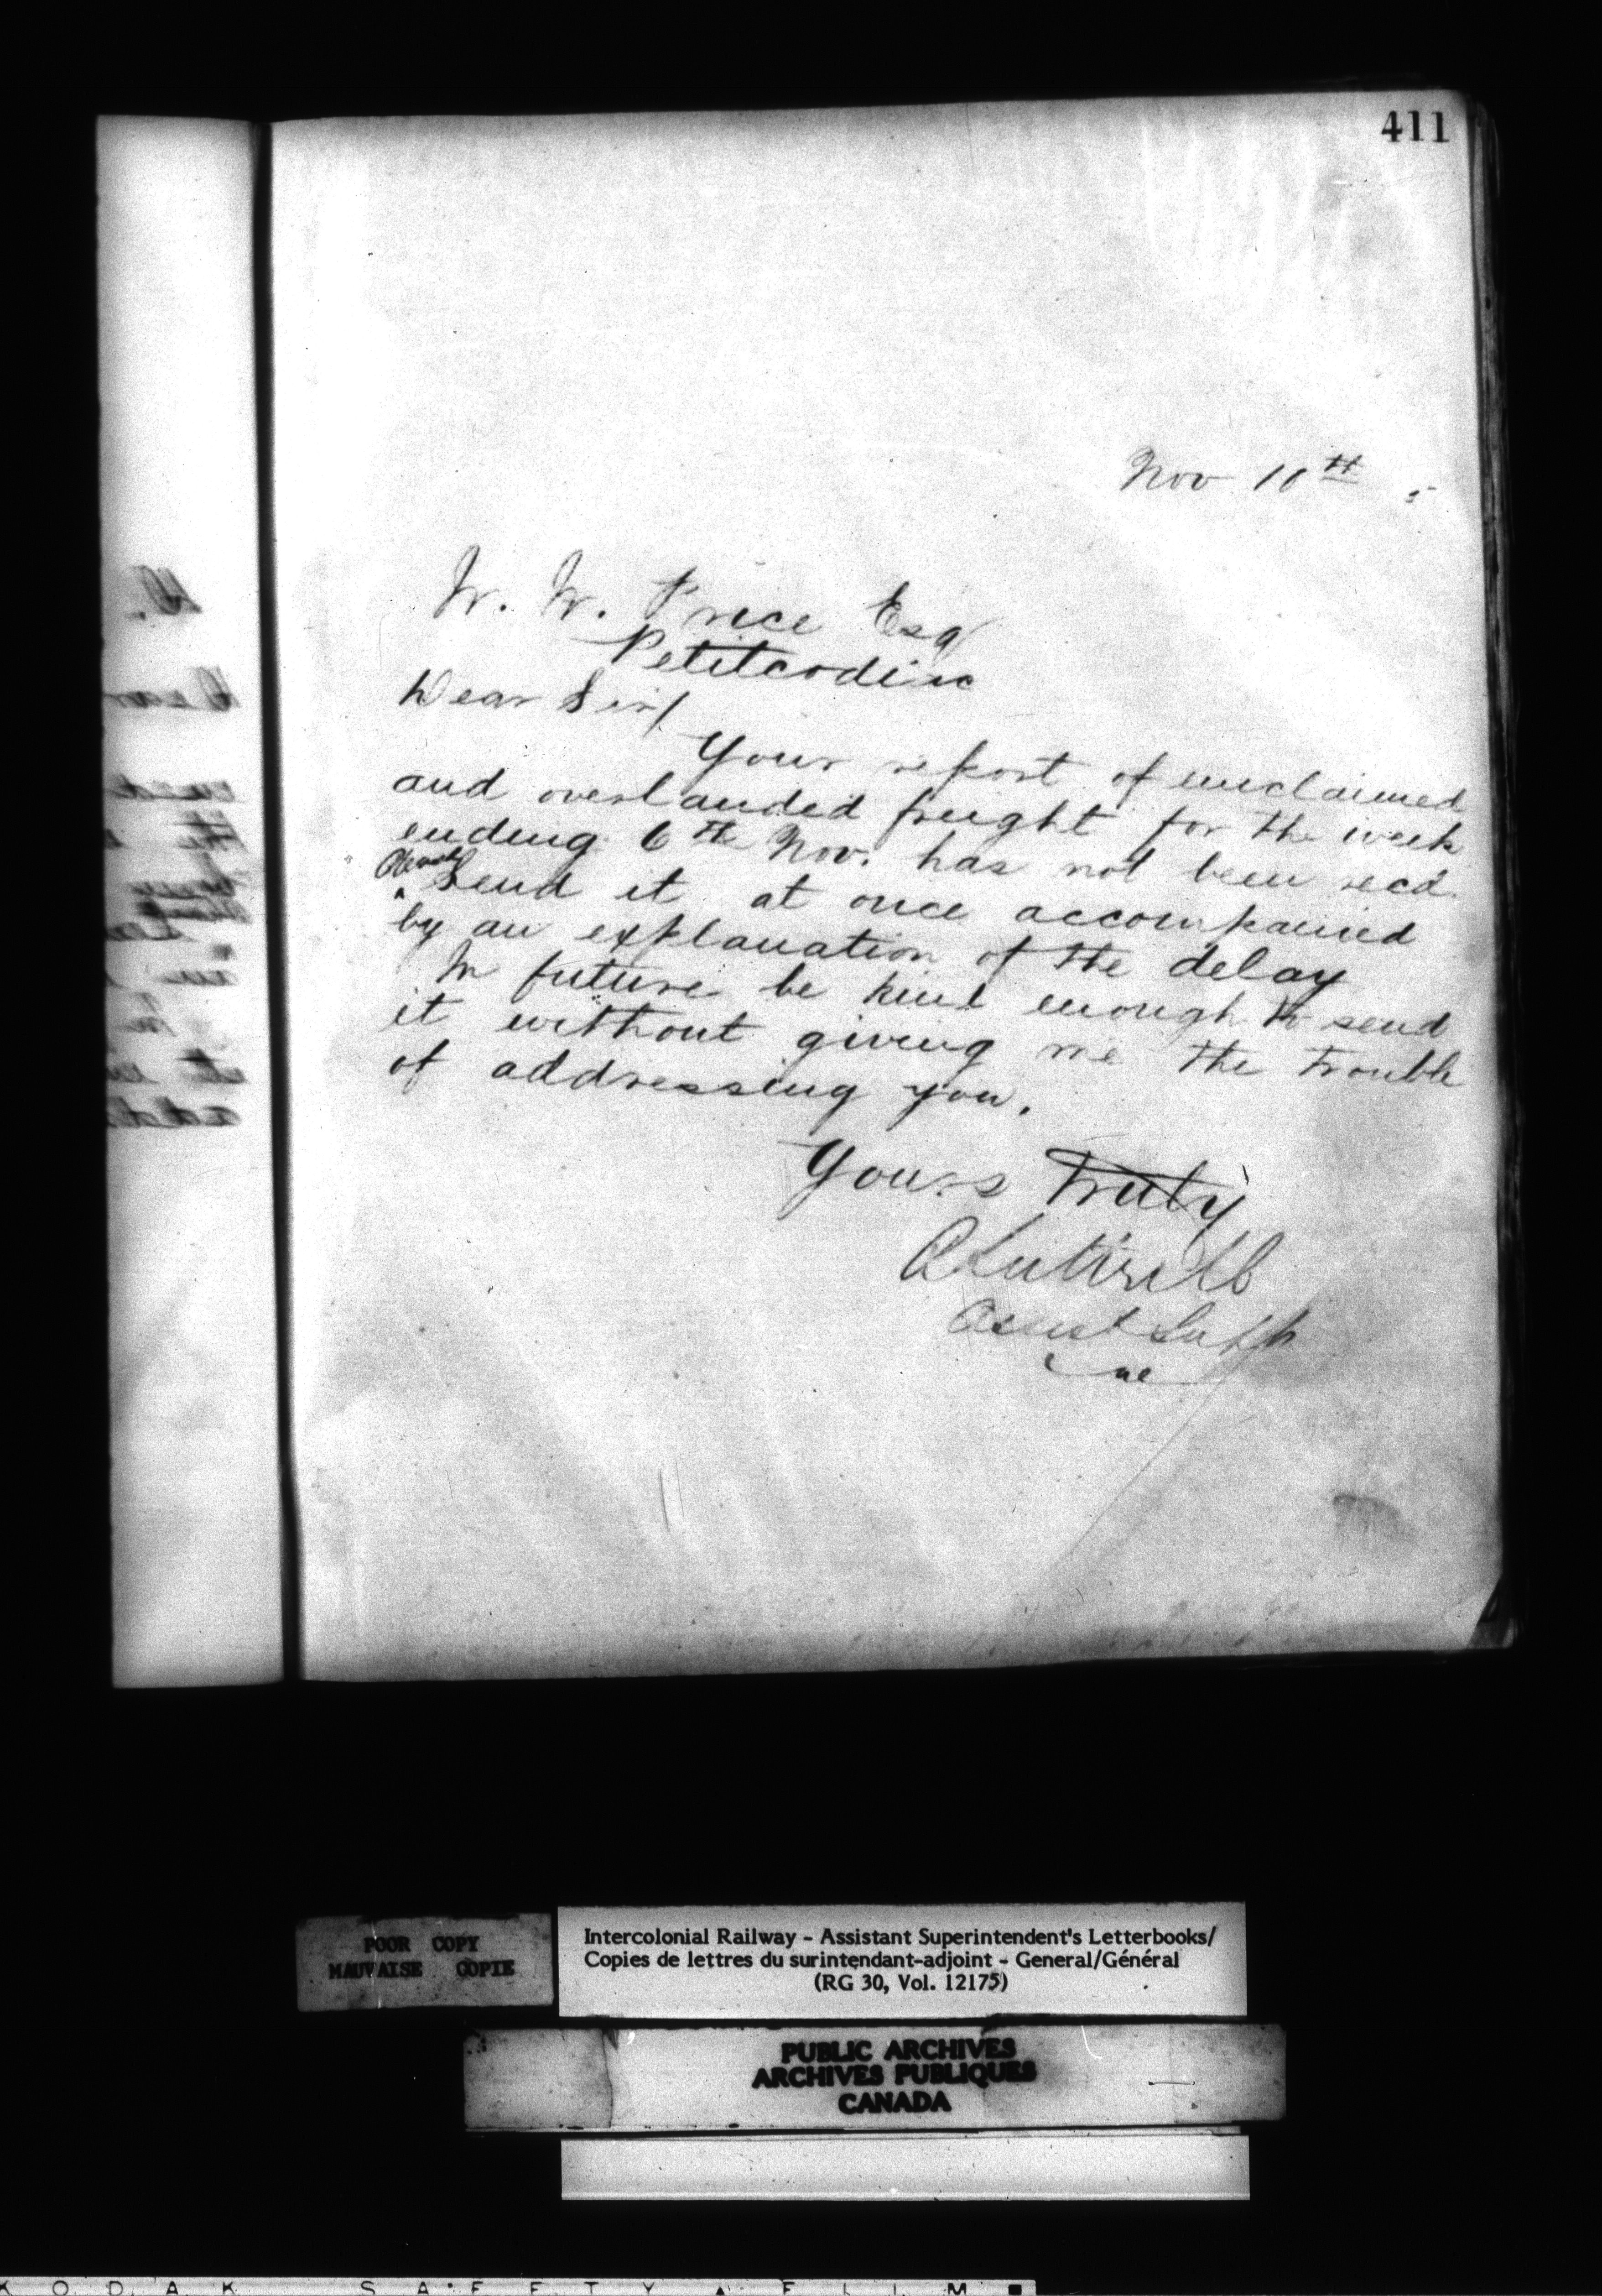 411
Nov 10th 5
W. W. Price Esq
Petitcodiac
Dear Sir/
Your report of unclaimed
and overlanded freight for the week
ending 6th Nov. has not been recd.
Please
Send it at once accompanied
by an explanation of the delay
In future be kind enough to send
it without giving me the trouble
of addressing you.
Yours Truly
A Luttrell
Assist Supt
POOR COPY
MAUVAISE COPIE
Intercolonial Railway - Assistant Superintendent's Letterbooks/
Copies de lettres du surintendant-adjoint - General/Général
(RG 30, Vol. 12175)
PUBLIC ARCHIVES
ARCHIVES PUBLIQUES
CANADA
KODAK SAFETY FILM